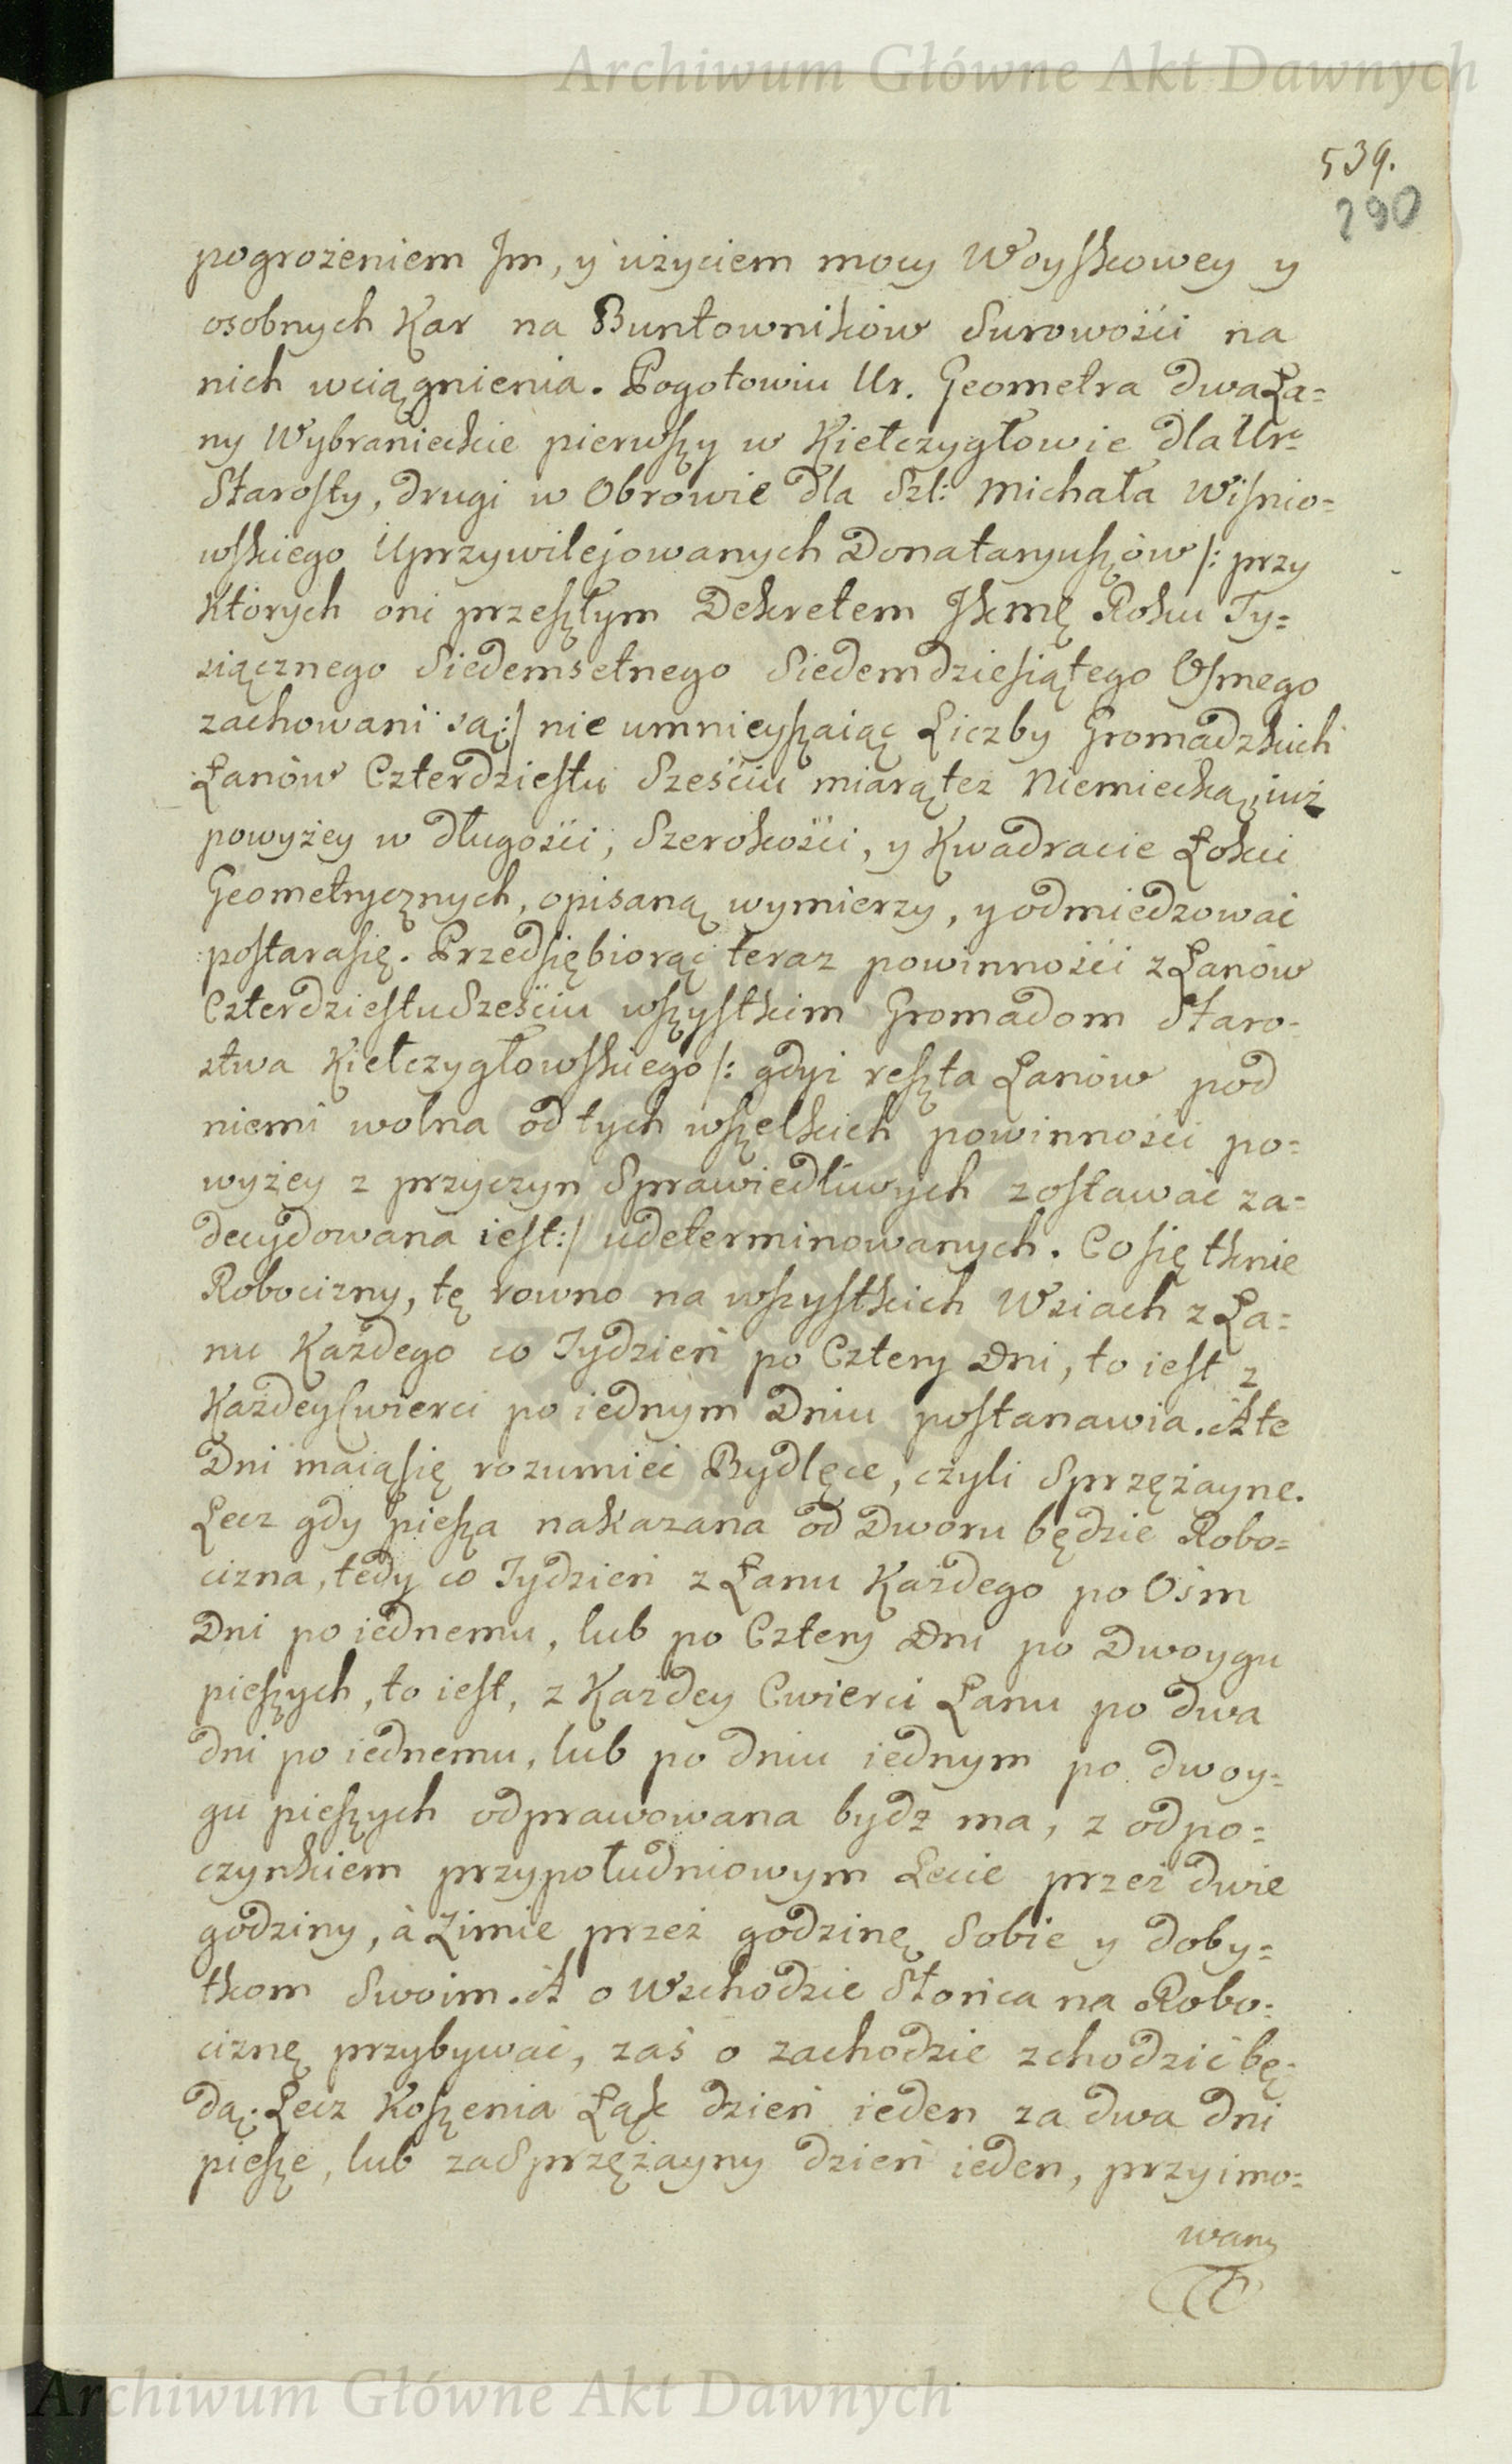 Archiwum Główne Akt Dawnych
539.
290
pogrożeniem Jm, y użyciem mocy Woyskowey y
osobnych Kar na Buntowników Surowości na
nich wciągnienia. Pogotowiu Ur. Geometra dwa Ła=
ny Wybranieckie pierwszy w Kiełczygłowie dla Urº
Starosty, drugi w Obrowie dla Szl: Michała Wiśnio=
wskiego Uprzywilejowanych Donataryuszów /: przy
których oni przeszłym Dekretem JKmę Roku Ty=
siącznego Siedemsetnego Siedemdziesiątego Osmego
zachowani są :/ nie umnieyszaiąc Liczby Gromadzkich
Łanów Czterdziestu Sześciu miarą tez Niemiecką, iuż
powyżey w długości, Szerokości, y Kwadracie Łokci
Geometrycznych, opisaną wymierzy, y odmiedzować
postara się. Przedsiębiorąc teraz powinności z Łanów
Czterdziestu Sześciu wszystkim Gromadom Staro=
stwa Kiełczygłowskiego /: gdyż reszta Łanów pod
niemi wolna od tych wszelkich powinności po=
wyżey z przyczyn Sprawiedliwych zostawać za=
decydowana iest :/ udeterminowanych. Co się tknie
Robocizny, tę rowno na wszystkich Wsiach z Ła=
nu Każdego co Tydzień po Cztery Dni, to iest z
Każdey Cwierci po iednym Dniu postanawia. A te
Dni maią się rozumieć Bydlęce, czyli Sprzężayne.
Lecz gdy piesza nakazana od Dworu będzie Robo=
cizna, tedy co Tydzień z Łanu Każdego po Ośm
Dni po iednemu, lub po Cztery Dni po Dwoygu
pieszych, to iest, z Każdey Cwierci Łanu po dwa
dni po iednemu, lub po dniu iednym po dwoy=
gu pieszych odprawowana bydz ma, z odpo=
czynkiem przypołudniowym Lecie przez dwie
godziny, à Zimie przez godzinę Sobie y doby=
tkom Swoim. A o Wschodzie Słońca na Robo=
ciznę przybywać, zaś o zachodzie zchodzić bę=
dą. Lecz Koszenia Łąk dzień ieden za dwa dni
piesze, lub za Sprzężayny dzień ieden, przyimo=
wany
Archiwum Główne Akt Dawnych